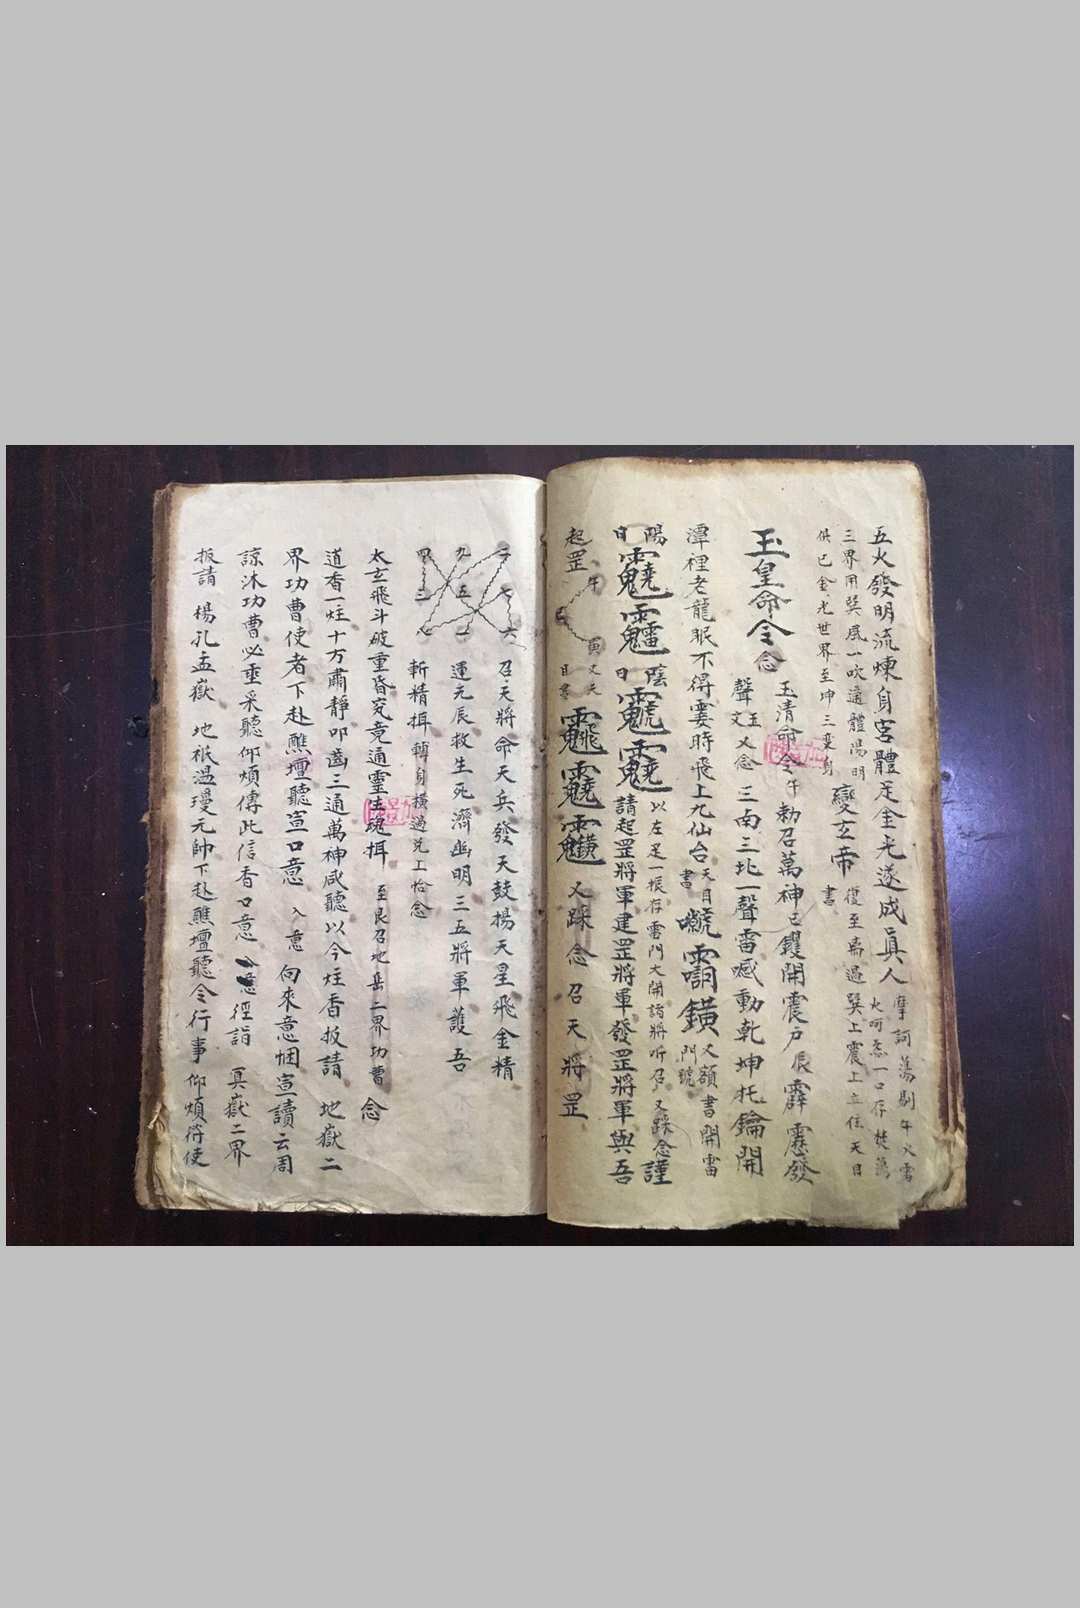 五火發明流煉身宮體足金光遂成真人 摩訶蕩剔午火雷
三界用巽風一吹遍體陽明 變玄帝 復至离過巽上震上立住天目
供已金光世界至坤三變身 書
玉皇命令 念 玉清命令午 勅召萬神已鑊開震户辰霹靂發
聲 又念 三南三北一聲雷喊動乾坤托鑰開
潭裡老龍眠不得霎時飛上九仙台 天目書 又額書開雷門號
陽日 陰日 以左足一振存雷門大開諸將听召又踩念 謹
請起罡將軍建罡將軍發罡將軍與吾
起罡 午 寅 又踩念召天將罡
二 七 六 召天將命天兵發天鼓揚天星飛金精
九 五 一 運元辰救生死濟幽明三五將軍護吾
四 三 八 斬精揖 轉身橫過兑上恰念
太玄飛斗破重昏究竟通靈生魂揖 至艮召地岳二界功曹 念
道香一炷十方肅靜叩齒三通萬神咸聽以今炷香扳請 地嶽二
界功曹使者下赴醮壇聽宣口意 入意 向來意悃宣讀云周
諒沐功曹必垂采聽仰煩傳此信香口意 徑詣 真嶽二界
扳請 楊孔孟嶽 地祇溫瓊元帥下赴醮壇聽令行事仰煩符使